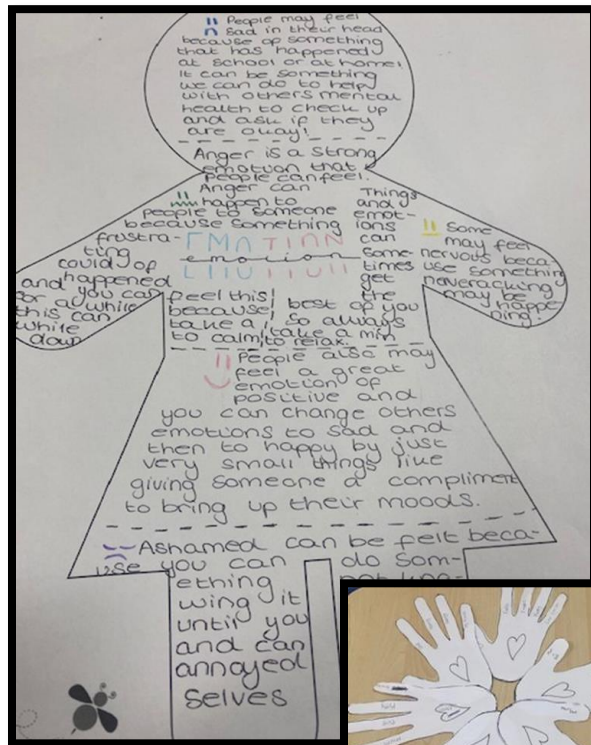 People may feel
sad in their head
because of something
that has happened
at school or at home!
It can be something
we can do to help
with others mental
health to check up
and ask if they
are okay!
Anger is a strong
emotion that
people can feel.
Anger can
happen to
people to someone
because something
frustra-
ting
could of
happened
and you can
for a while
this can
while
down
EMOTION
emotion
feel this
because
take a
to calm
Things
and
emot-
ions
can
some-
times
get
the
best of you
so always
take a min
to relax.
Some
may feel
nervous beca-
use something
nerveracking
may be
happe
ning.
People also may
feel a great
emotion of
positive and
you can change others
emotions to sad and
then to happy by just
very small things like
giving someone a compliment
to bring up their moods.
Ashamed can be felt beca-
use you can
do som-
ething
not kno-
wing it
until you
and can
annoyed
selves